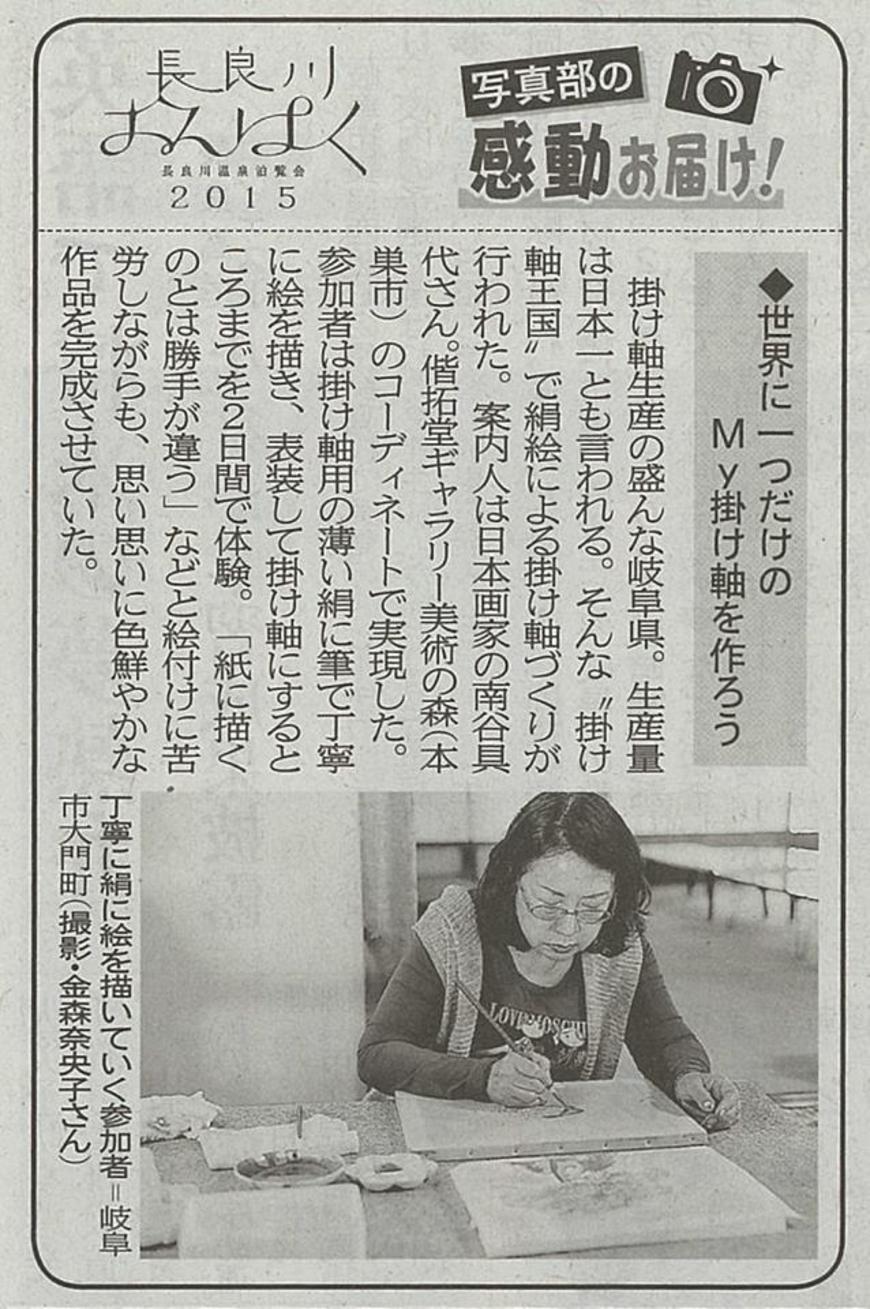 長良川
おんぱく
長良川温泉泊覧会
2015
写真部の
感動お届け!
◆世界に一つだけの
My掛け軸を作ろう
掛け軸生産の盛んな岐阜県。生産量
は日本一とも言われる。そんな〝掛け
軸王国〟で絹絵による掛け軸づくりが
行われた。案内人は日本画家の南谷具
代さん。偕拓堂ギャラリー美術の森(本
巣市)のコーディネートで実現した。
参加者は掛け軸用の薄い絹に筆で丁寧
に絵を描き、表装して掛け軸にすると
ころまでを2日間で体験。「紙に描く
のとは勝手が違う」などと絵付けに苦
労しながらも、思い思いに色鮮やかな
作品を完成させていた。
LOVE MOSCHI
丁寧に絹に絵を描いていく参加者=岐阜
市大門町(撮影・金森奈央子さん)